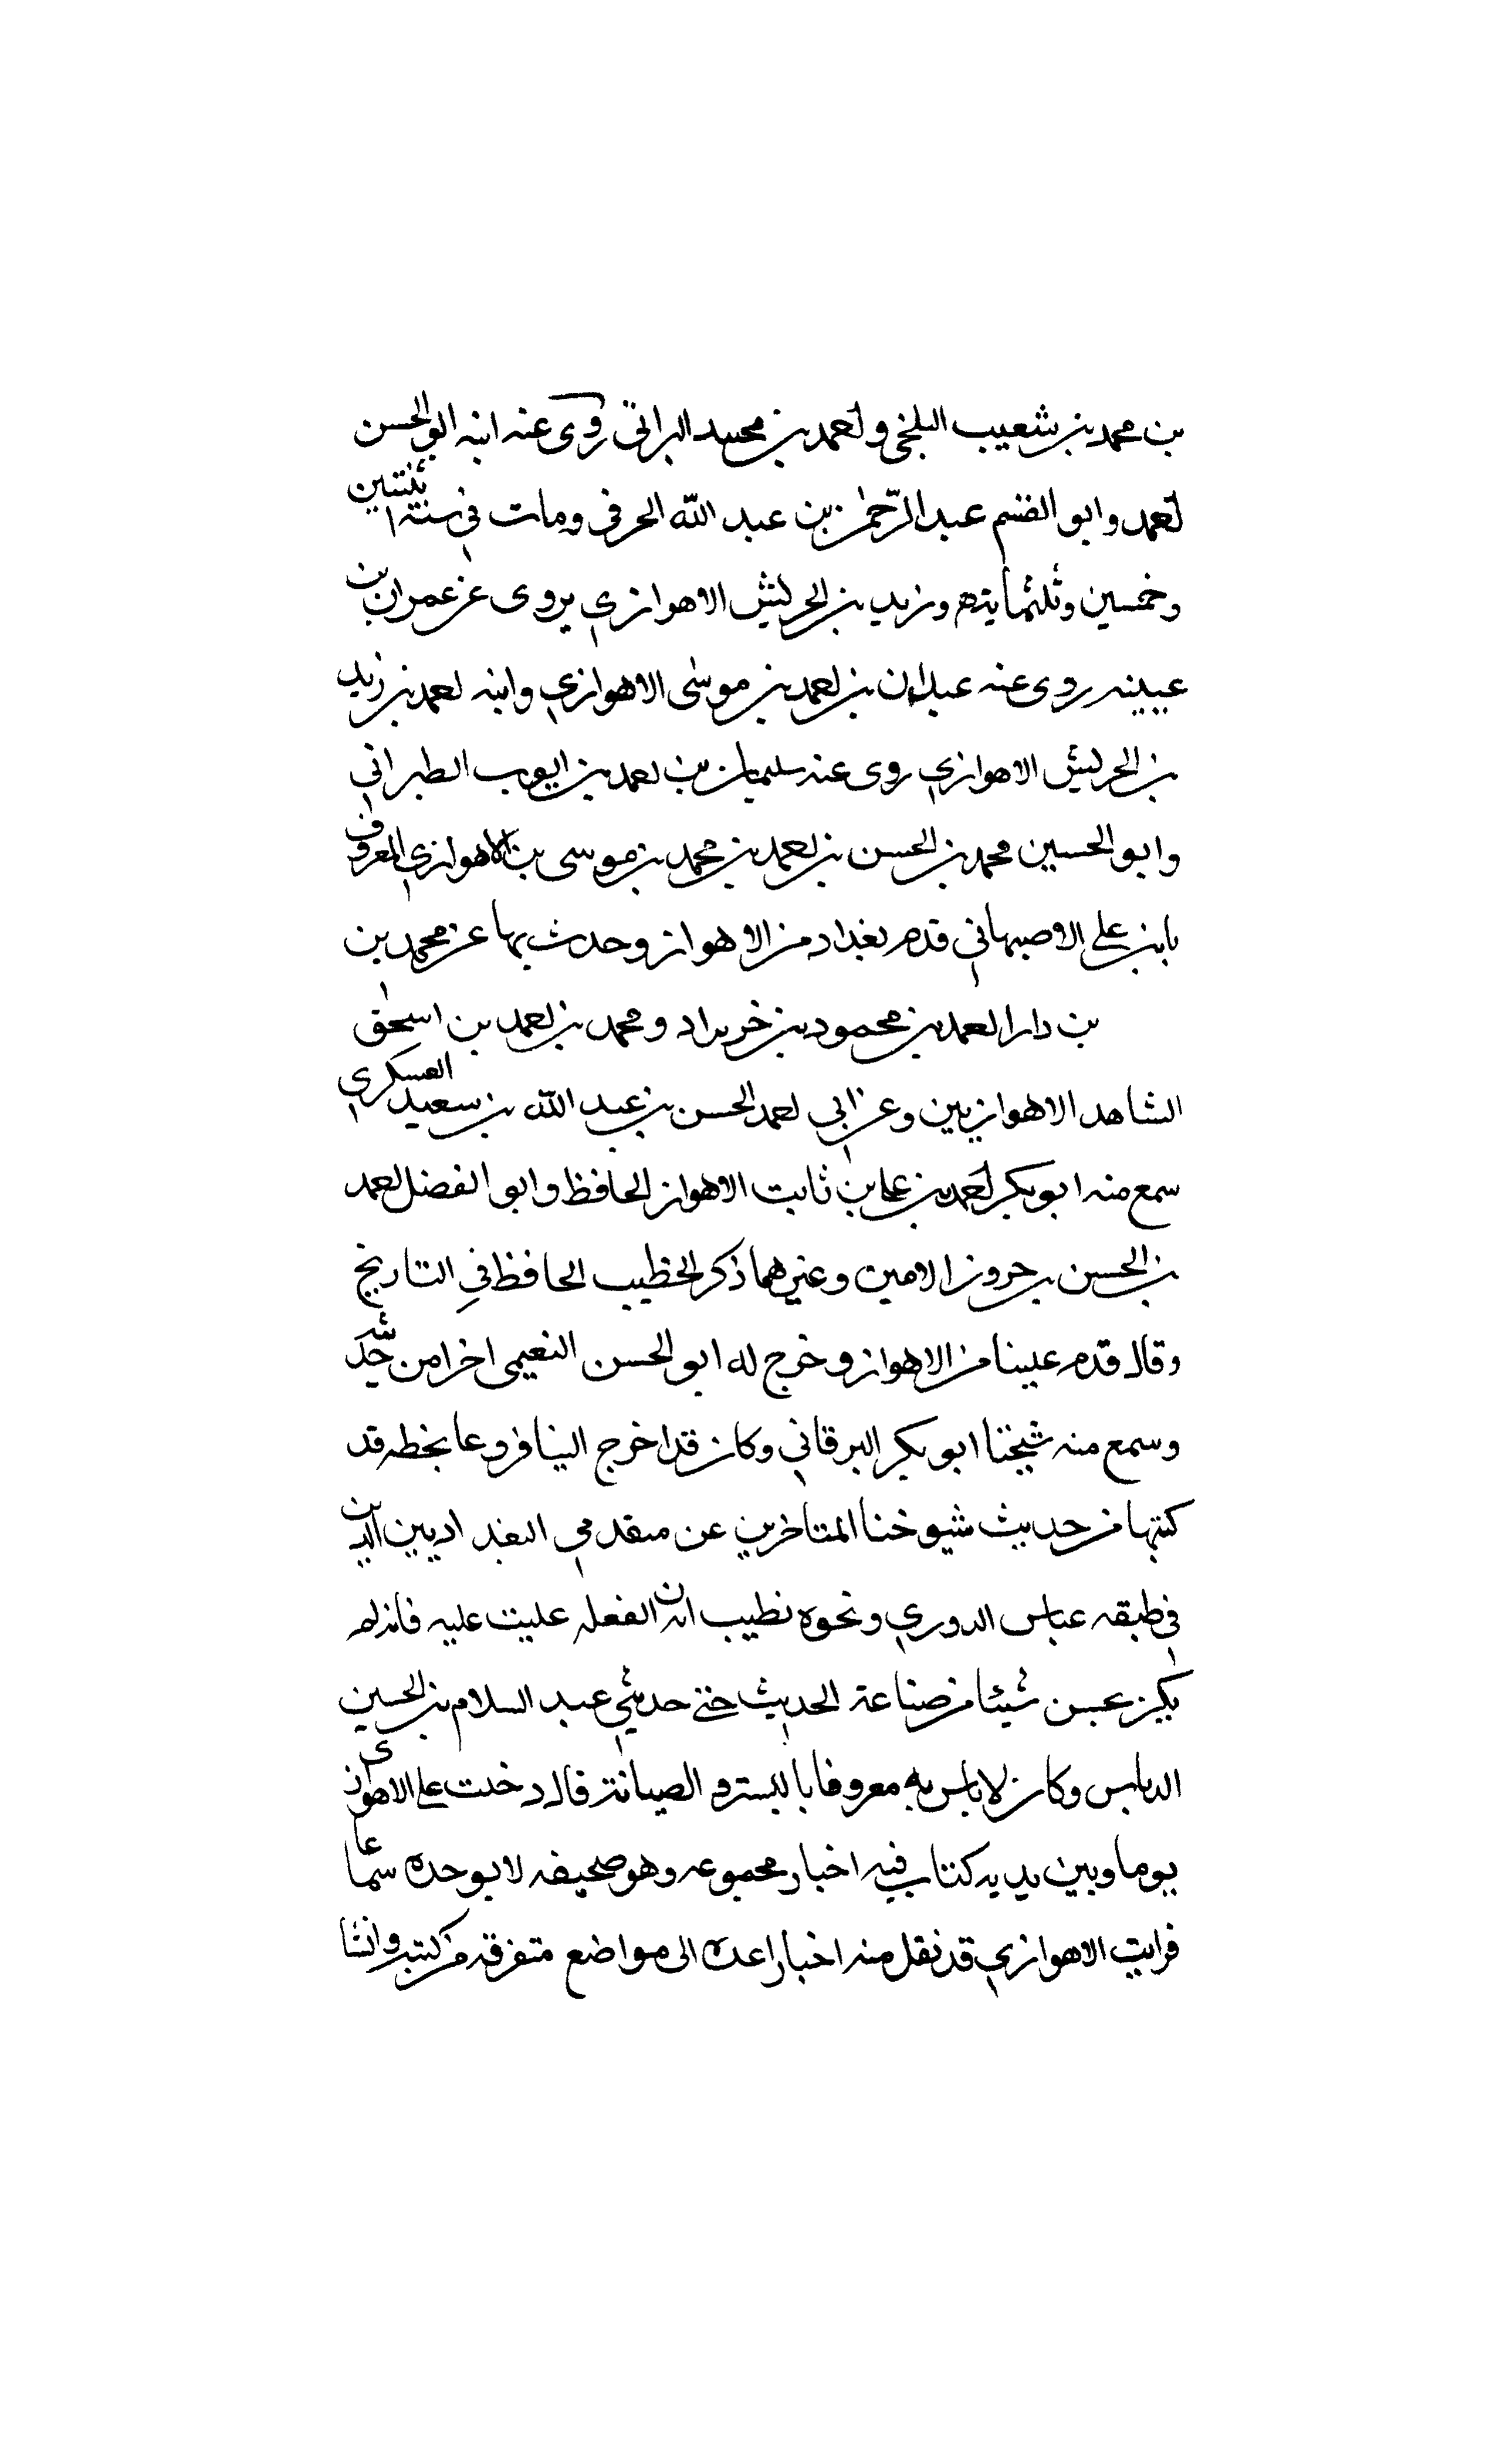 بن محمد بن شعيب البلخي واحمد بن محمد البراتي روى عنه ابنه ابو الحسن
احمد وابو القسم عبد الرحمن بن عبد الله الحرفي ومات في سنة اثنتين
وخمسين وثلثماية وزيد بن الحريش الاهوازي يروى عن عمران بن
عيينه روى عنه عبدان بن احمد بن موسى الاهوازي وابنه احمد بن زيد
بن الحريش الاهوازي روى عنه سليمان بن احمد بن ايوب الطبراني
وابو الحسين محمد بن الحسن بن احمد بن محمد بن موسى بن الاهوازي المعروف
بابن علي الاصبهاني قدم بغداد من الاهواز وحدث بها عن محمد بن
بن دارا احمد بن محمود بن خرزاد ومحمد بن احمد بن اسحق
الشاهد الاهوازيين وعن ابي احمد الحسن بن عبد الله بن سعيد العسكري
سمع منه ابو بكر احمد بن علي بن ثابت الاهواز الحافظ وابو الفضل احمد
بن الحسن بن حرون الامين وغيرهما ذكر الخطيب الحافظ في التاريخ
وقال قدم علينا من الاهواز وخرج له ابو الحسن النعيمي اخرا من حديثه
وسمع منه شيخنا ابو بكر البرقاني وكان قد اخرج الينا فروعا بخطه قد
كتبها من حديث شيوخنا المتاخرين عن متقدمي البغداديين الذين
في طبقه عباس الدوري ونحوه نطيب ان الغفله عليت عليه فانه لم
يكن يحسن شيئا من صناعة الحديث حتى حدثني عبد السلام بن الحسين
الدباس وكان لا باس به معروفا بالستر والصيانة قال دخلت على الاهوازى
يوما وبين يديه كتاب فيه اخبار مجموعه وهو صحيفه لا يوحده سماعا
فرايت الاهوازي قد نقل منه اخبارا عده الى مواضع متفرقه من كتبه وانشا